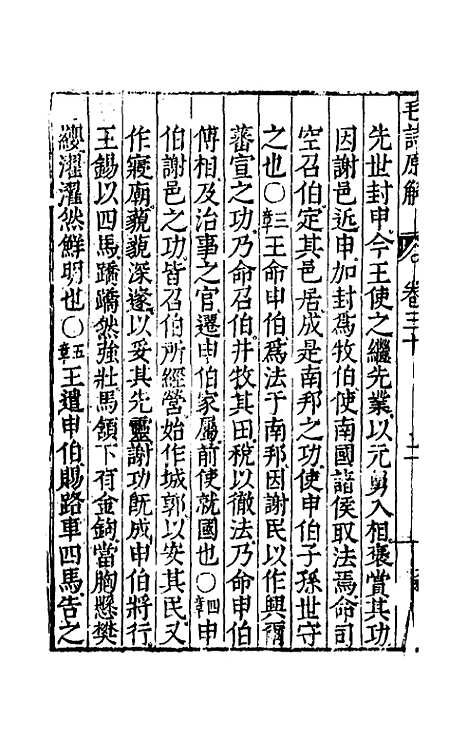 毛詩原解 卷三十
先世封申今王使之繼先業以元舅入相褒賞其功
因謝邑近申加封爲牧伯使南國諸侯取法焉命司
空召伯定其邑居成是南邦之功使申伯子孫世守
之也〇三章王命申伯爲法于南邦因謝民以作興爾
蕃宣之功乃命召伯井牧其田稅以徹法乃命申伯
傅相及治事之官遷申伯家屬前使就國也〇四章申
伯謝邑之功皆召伯所經營始作城郭以安其民又
作寢廟藐藐深邃以妥其先靈謝功旣成申伯將行
王錫以四馬蹻蹻然強壯馬領下有金鉤當胸懸樊
纓濯濯然鮮明也〇五章王遣申伯賜路車四馬告之